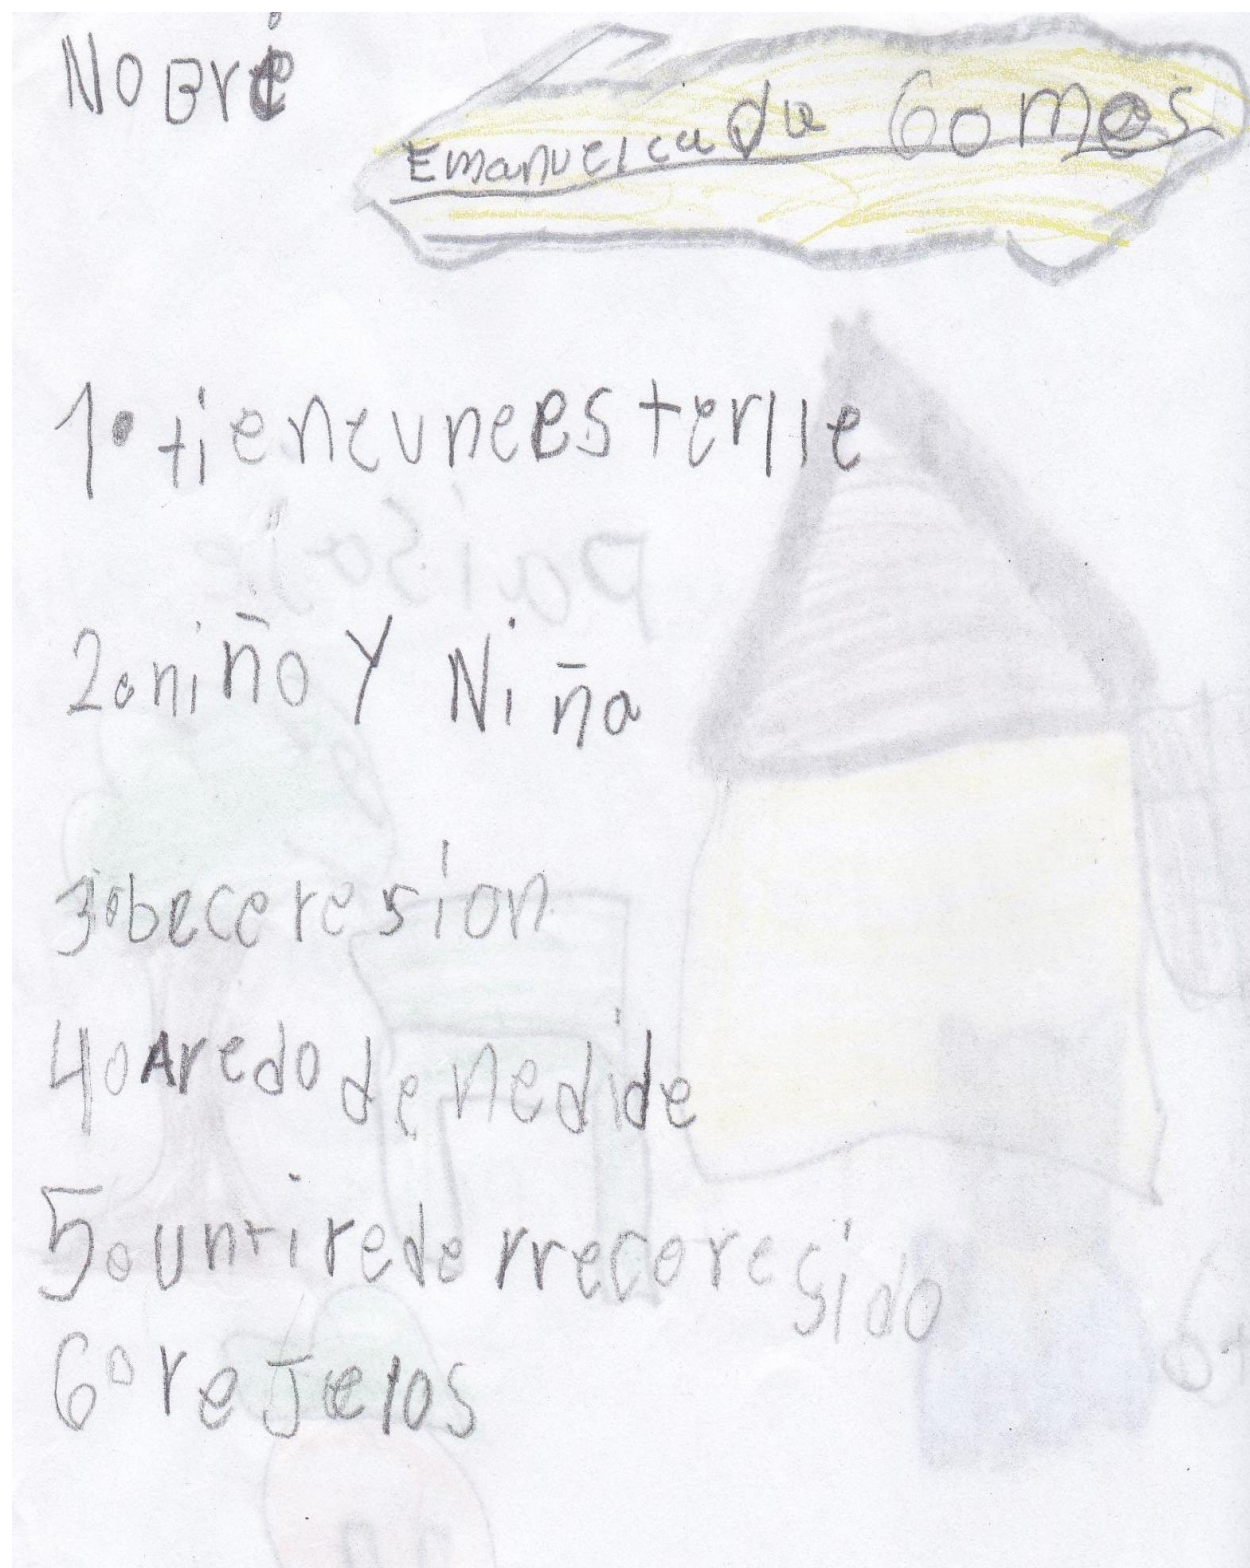 NoBre
Emanuel cada Gomes
1° tieneuneesterlle
2° niño Y Niña
3° beceresion
4° Aredo de nedide
5° untirede rrecoresido
6° rejelos
paisaje